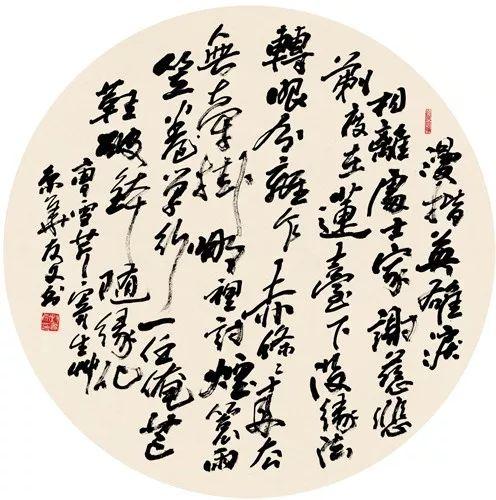 漫揩英雄淚
相離處士家謝慈悲
剃度在蓮臺下沒緣法
轉眼分離乍赤條〻來去
無牽掛哪裡討煙蓑雨
笠卷單行一任俺芒
鞋破缽隨緣化
曹雪芹寄生草